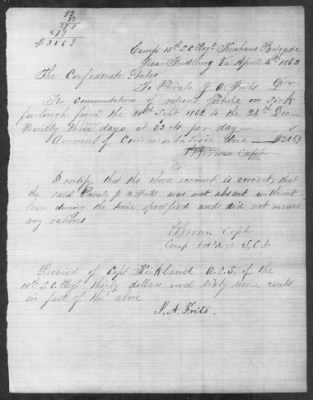 93
33
279
279
$30.69
Camp 15th S.C. Regt. Kershaws Brigade
Near Fredksburg Va April 4th 1863
The Confederate States
To Private J. A. Fritz Dr
For commutation of rations while on sick
furlough from the 20th Sept 1862 to the 22d Dec
Ninety three days at 33 cts per day
Amount of Commutation Due $30.69
Capt
I certify that the above account is correct, that
the said Private J A Fritz was not absent without
leave during the time specified and did not receive
any rations
Capt
Comp 15th Regt S.C.V.
Received of Capt Kirkland A.C.S. of the
15th S.C. Regt thirty dollars and sixty nine cents
in full of the above
J. A. Frits.